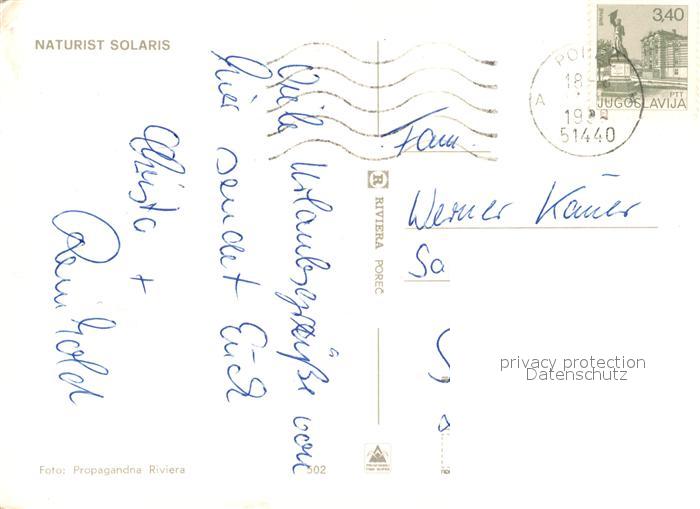 NATURIST SOLARIS
Viele Urlaubsgrüße von
hier sendet Euch
Christa +
Reinhold
Foto: Propagandna Riviera
502
RIVIERA POREČ
3,40
PTT
JUGOSLAVIJA
18
A
51440
Fam.
Werner Kaiser
Sa
privacy protection
Datenschutz